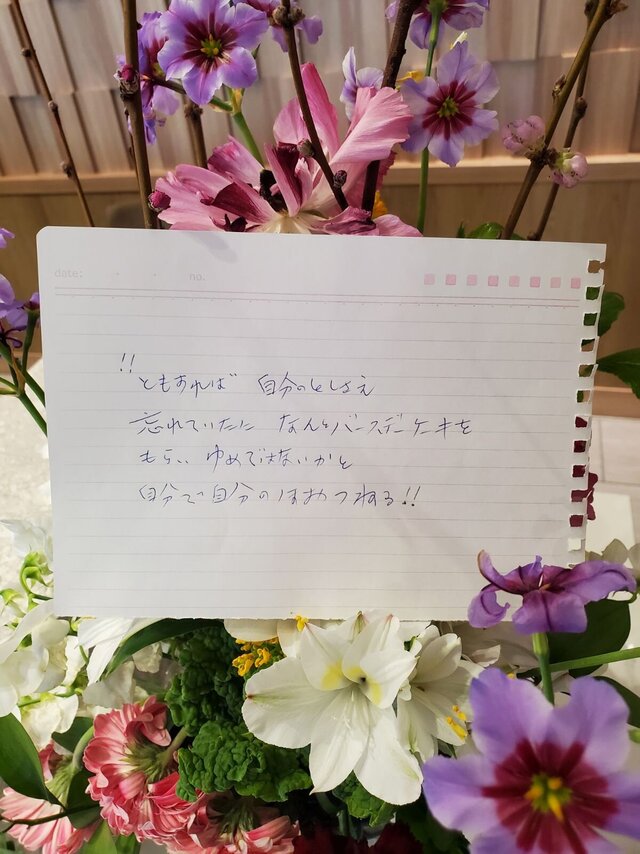 date: ・ ・ no.
!!
ともすれば 自分のとしさえ
忘れていたに なんとバースデーケーキを
もらい ゆめではないかと
自分で自分のほおつねる!!